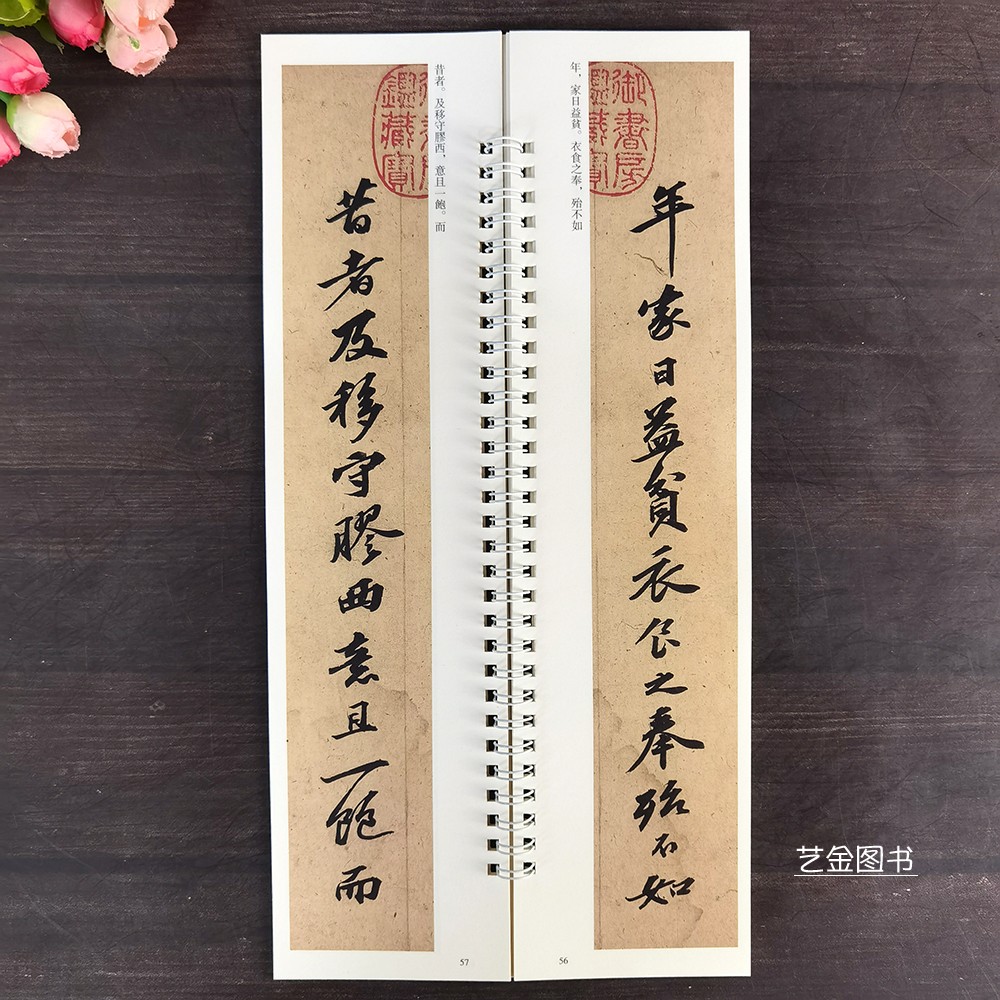 年家日益貧衣食之奉殆不如
年，家日益貧。衣食之奉，殆不如
御書房
鑑藏寶
56
昔者及移守膠西意且一飽而
昔者。及移守膠西，意且一飽。而
鑑藏寶
57
艺金图书